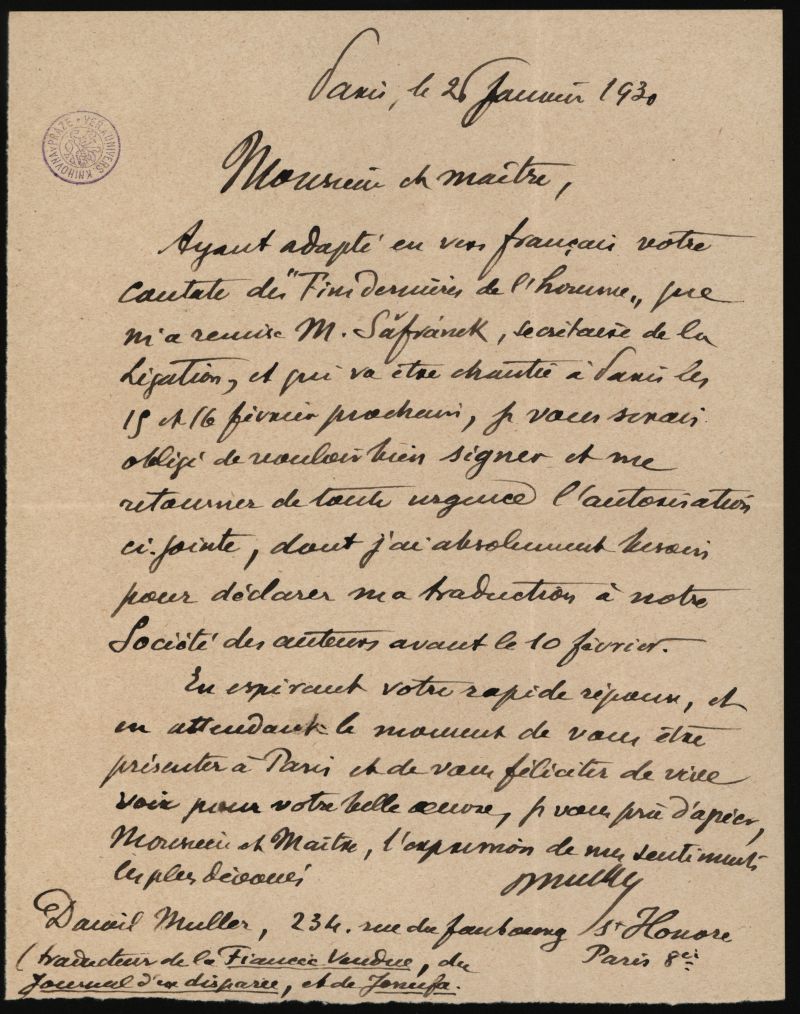 Paris, le 20 Janvier 1930
VEŘ. A UNIVERS. KNIHOVNA V PRAZE
Monsieur et maître,
Ayant adapté en vers français votre
cantate des "Fins dernières de l'homme„ que
m'a remise M. Šafránek, secrétaire de la
Légation, et qui va être chantée à Paris les
15 et 16 février prochain, je vous serais
obligé de vouloir bien signer et me
retourner de toute urgence l'autorisation
ci-jointe, dont j'ai absolument besoin
pour déclarer ma traduction à notre
Société des auteurs avant le 10 février.
En espérant votre rapide réponse, et
en attendant le moment de vous être
présenter à Paris et de vous féliciter de vive
voix pour votre belle œuvre, je vous prie d'agréer,
Monsieur et Maître, l'expression de mes sentiments
les plus dévoués
DMuller
Daniel Muller, 234. rue du faubourg St Honoré
Paris 8e
(traducteur de la Fiancée Vendue, du
Journal d'un disparu, et de Jenufa.